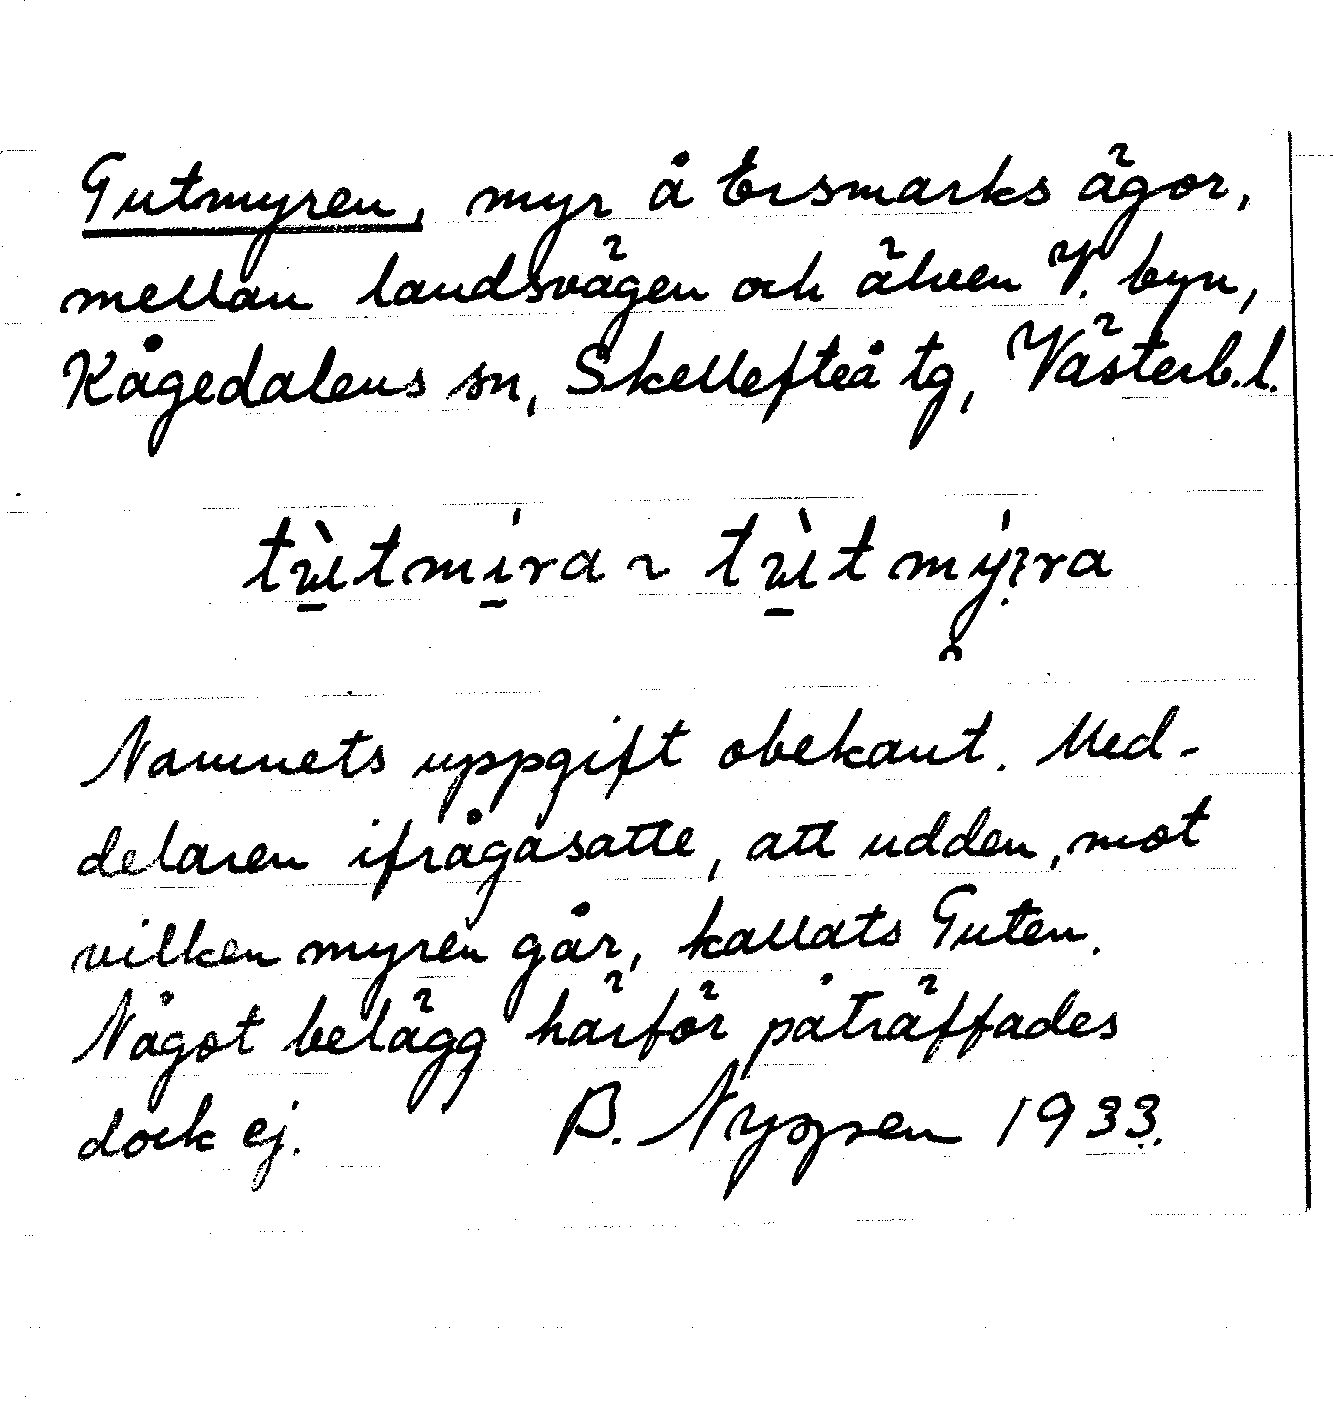 Tutmyren, myr å Ersmarks ägor,
mellan landsvägen och älven V. byn,
Kågedalens sn, Skellefteå tg, Västerb.l.
Namnets uppgift obekant. Med-
delaren ifrågasatte, att udden, mot
vilken myren går, kallats Tuten.
Något belägg härför påträffades
dock ej. B. Nygren 1933.